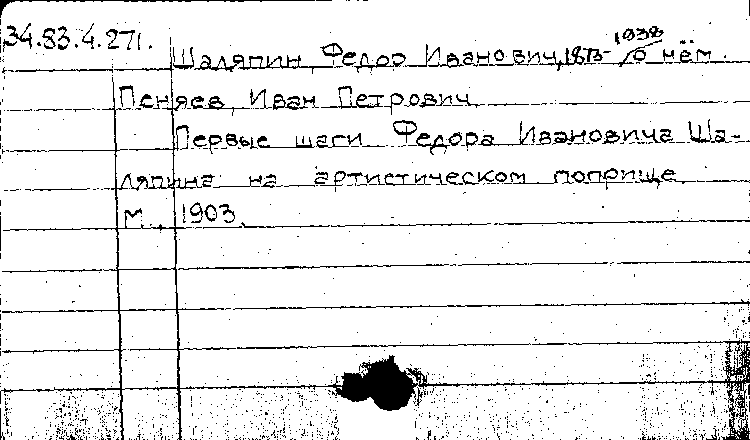 34.83.4.271.
Шаляпин, Федор Иванович, 1873-1938 /о нём.
Пеняев, Иван Петрович.
Первые шаги Федора Ивановича Ша-
ляпина на артистическом поприще.
М., 1903.